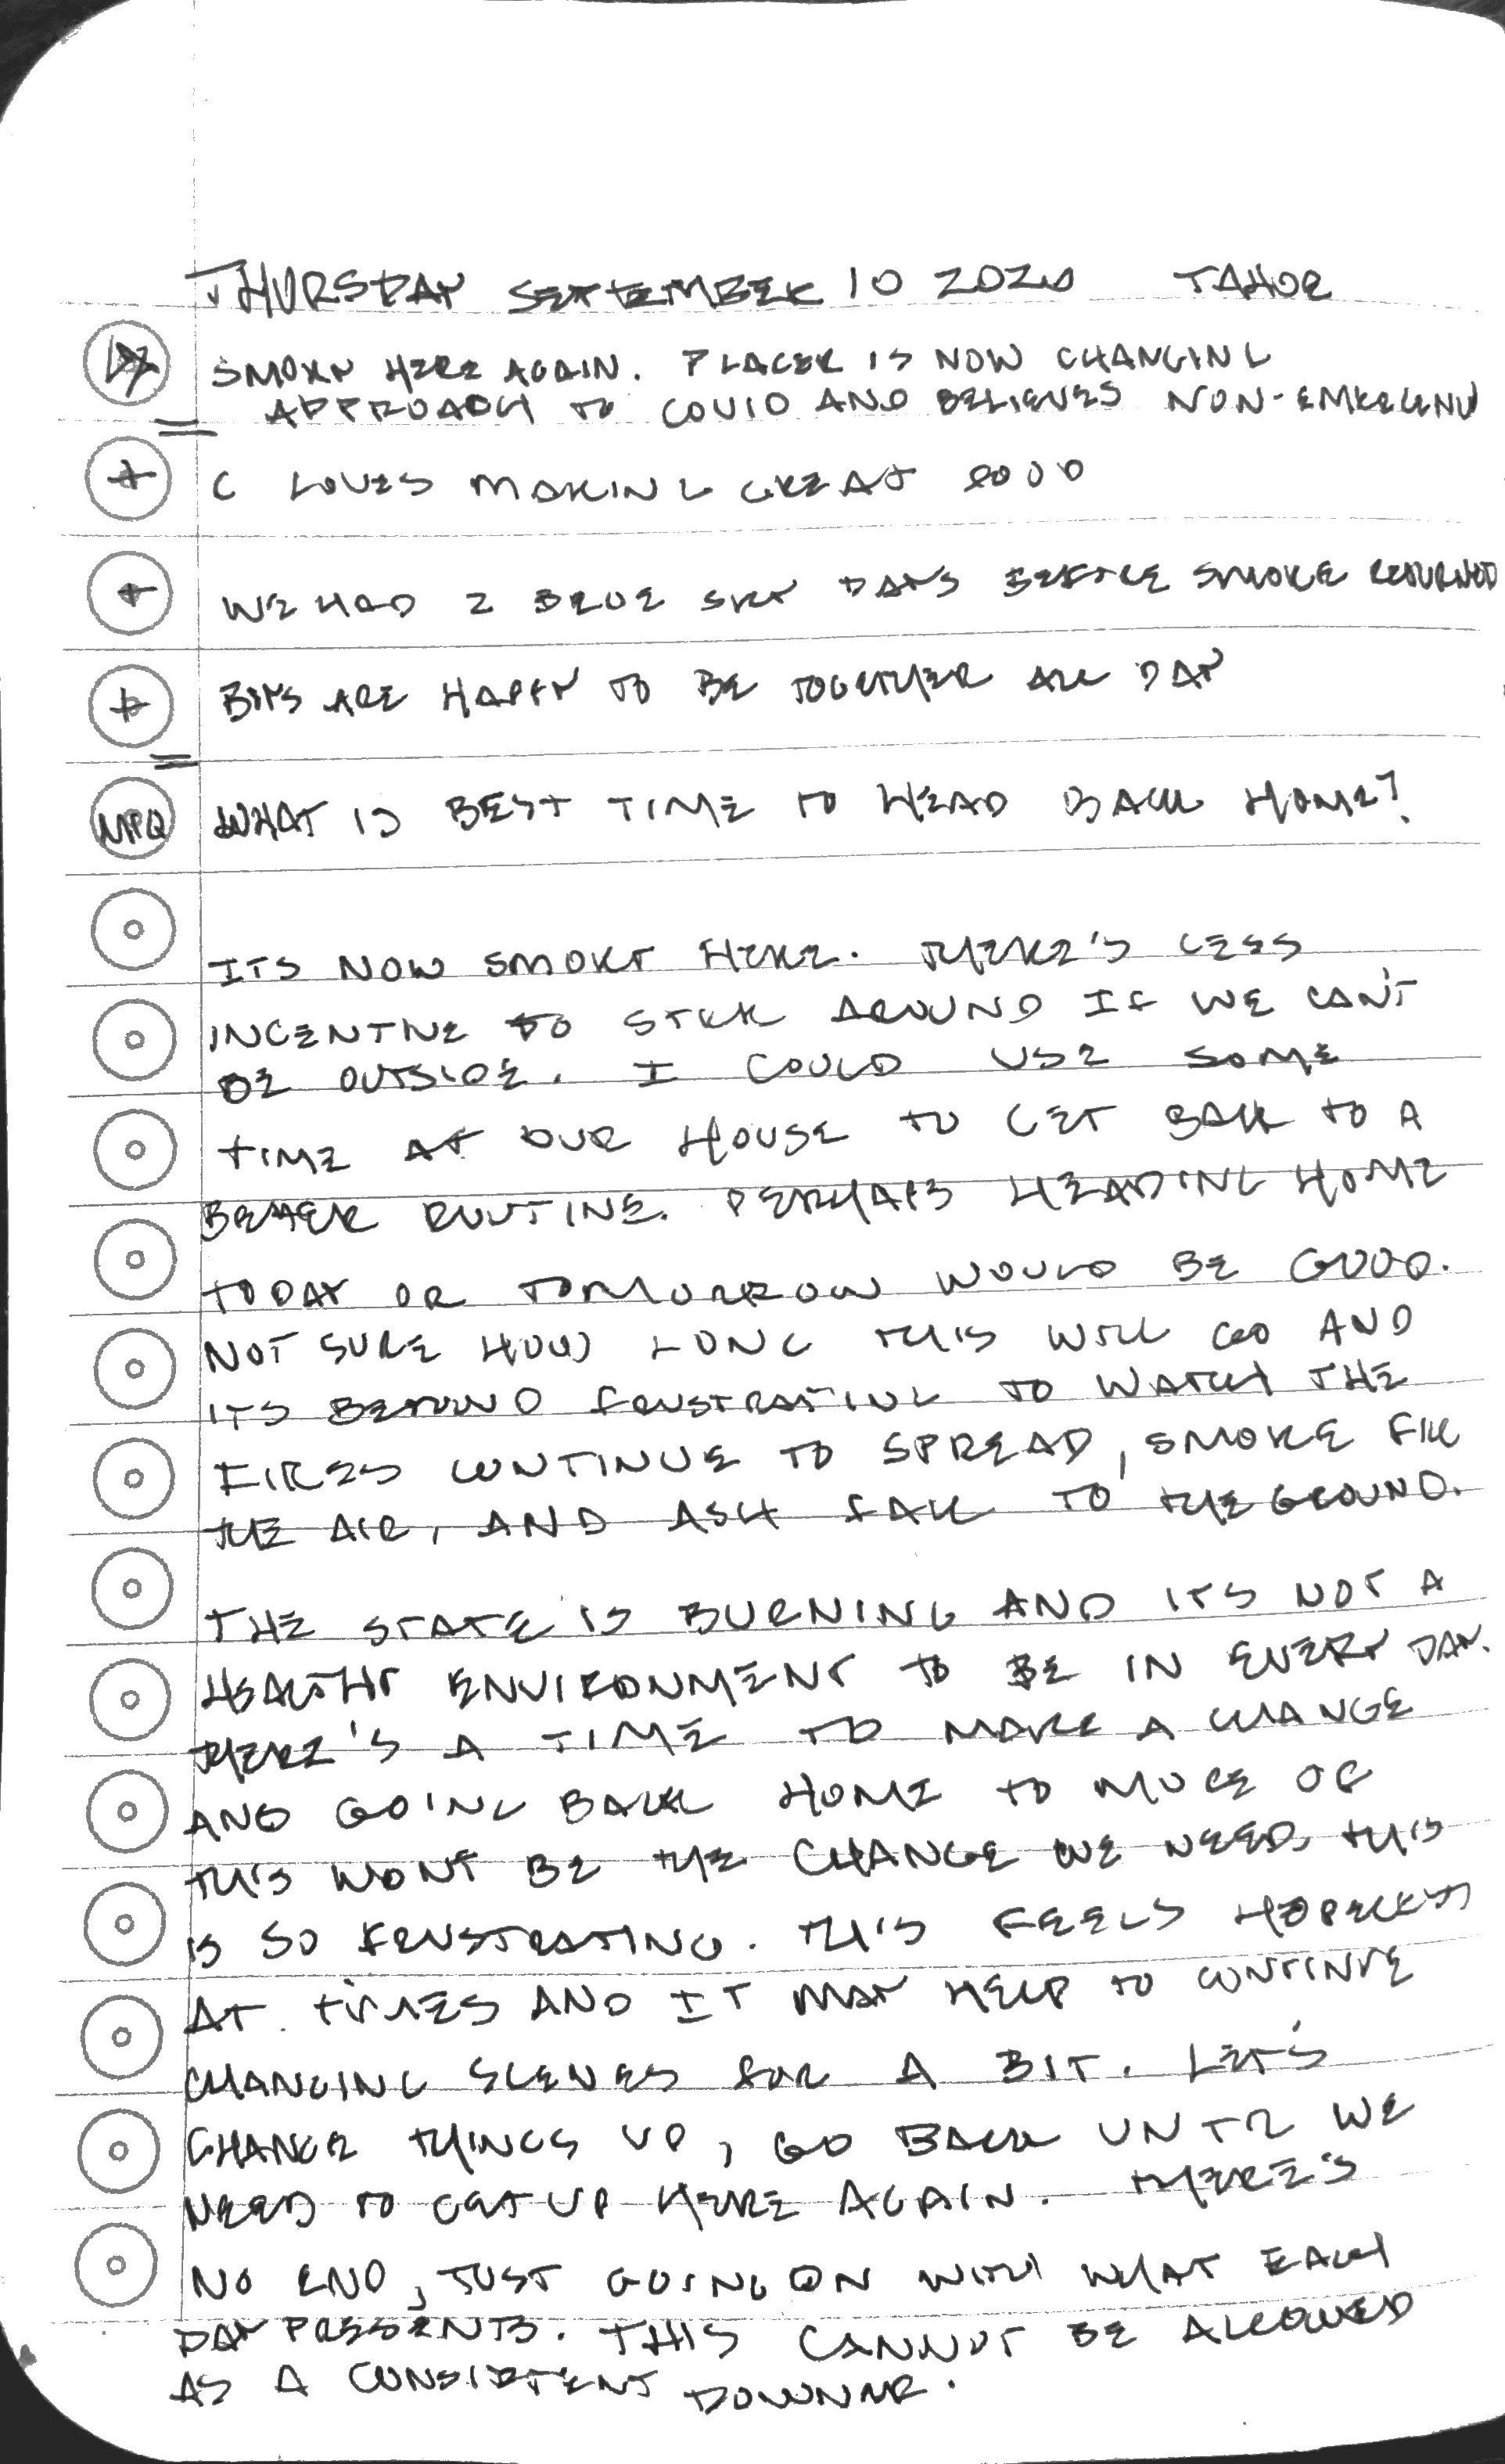 THURSDAY SEPTEMBER 10 2020 TAHOE
SMOKY HERE AGAIN. PLACER IS NOW CHANGING
APPROACH TO COVID AND BELIEVES NON-EMERGENCY
+ C LOVES MAKING GREAT FOOD
+ WE HAD 2 BLUE SKY DAYS BEFORE SMOKE RETURNED
+ BOYS ARE HAPPY TO BE TOGETHER ALL DAY
MPQ WHAT IS BEST TIME TO HEAD BACK HOME?
ITS NOW SMOKY HERE. THERE'S LESS
INCENTIVE TO STICK AROUND IF WE CAN'T
BE OUTSIDE. I COULD USE SOME
TIME AT OUR HOUSE TO GET BACK TO A
BETTER ROUTINE. PERHAPS HEADING HOME
TODAY OR TOMORROW WOULD BE GOOD.
NOT SURE HOW LONG THIS WILL GO AND
ITS BEYOND FRUSTRATING TO WATCH THE
FIRES CONTINUE TO SPREAD, SMOKE FILL
THE AIR, AND ASH FALL TO THE GROUND.
THE STATE IS BURNING AND ITS NOT A
HEALTHY ENVIRONMENT TO BE IN EVERY DAY.
THERE'S A TIME TO MAKE A CHANGE
AND GOING BACK HOME TO MORE OF
THIS WONT BE THE CHANGE WE NEED. THIS
IS SO FRUSTRATING. THIS FEELS HOPELESS
AT TIMES AND IT MAY HELP TO CONTINUE
CHANGING SCENES FOR A BIT. LET'S
CHANGE THINGS UP, GO BACK UNTIL WE
NEED TO GET UP HERE AGAIN. THERE'S
NO END, JUST GOING ON WITH WHAT EACH
DAY PRESENTS. THIS CANNOT BE ALLOWED
AS A CONSISTENT DOWNER.